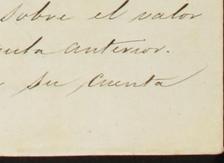 sobre el valor
anterior.
su cuenta